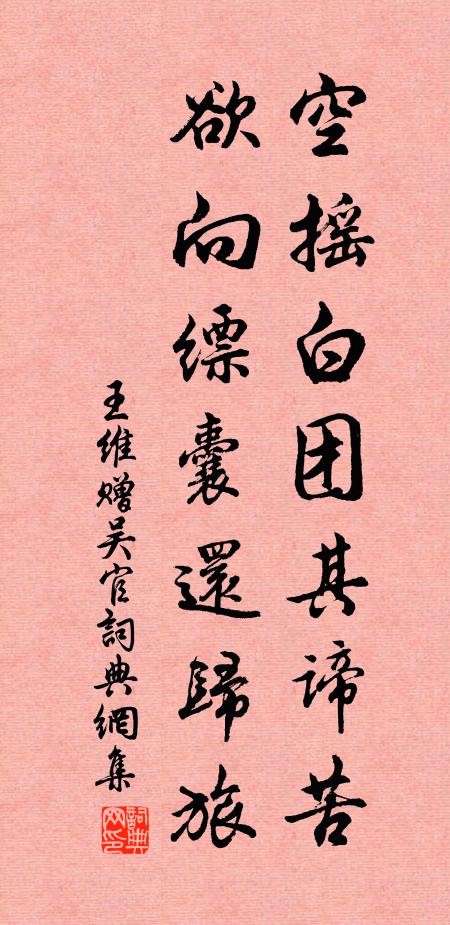 空摇白团其谛苦
欲向缥囊還歸旅
王维赠吴官詞典網集
詞典网印